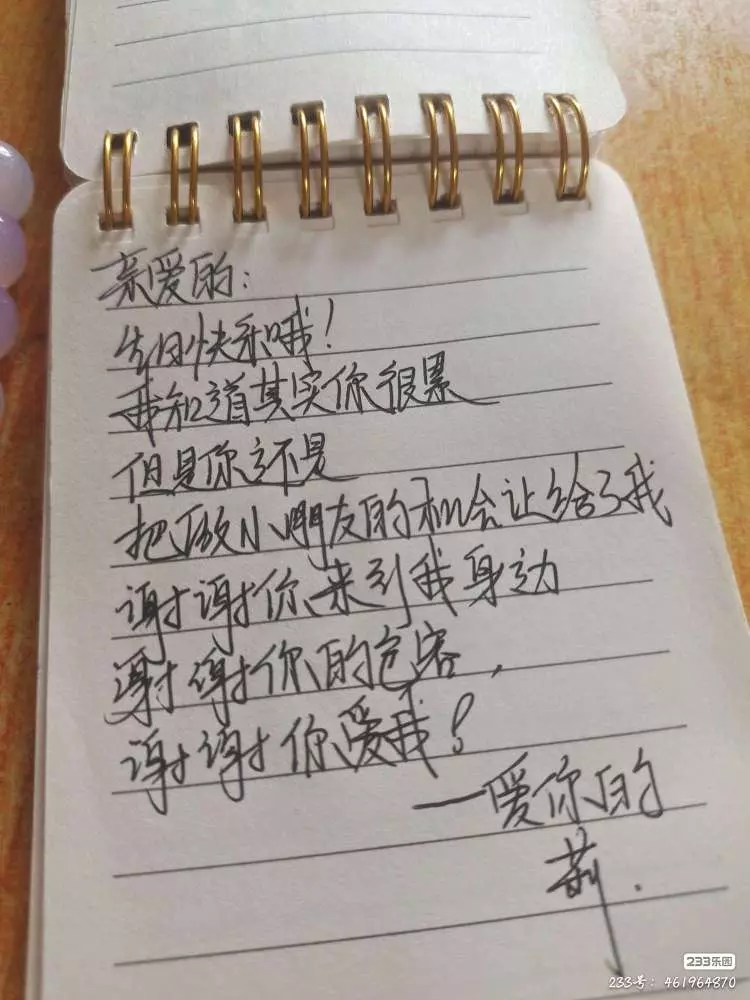 亲爱的:
生日快乐哦!
我知道其实你很累
但是你还是
把做小朋友的机会让给了我
谢谢你来到我身边
谢谢你的包容,
谢谢你爱我!
—爱你的
莉.
233乐园
233号: 461964870